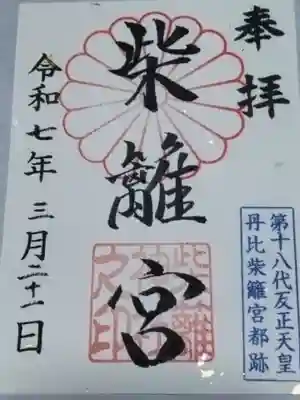 奉拝
柴籬宮
令和七年三月二十一日
第十八代反正天皇
丹比柴籬宮都跡
柴籬
神社
之印